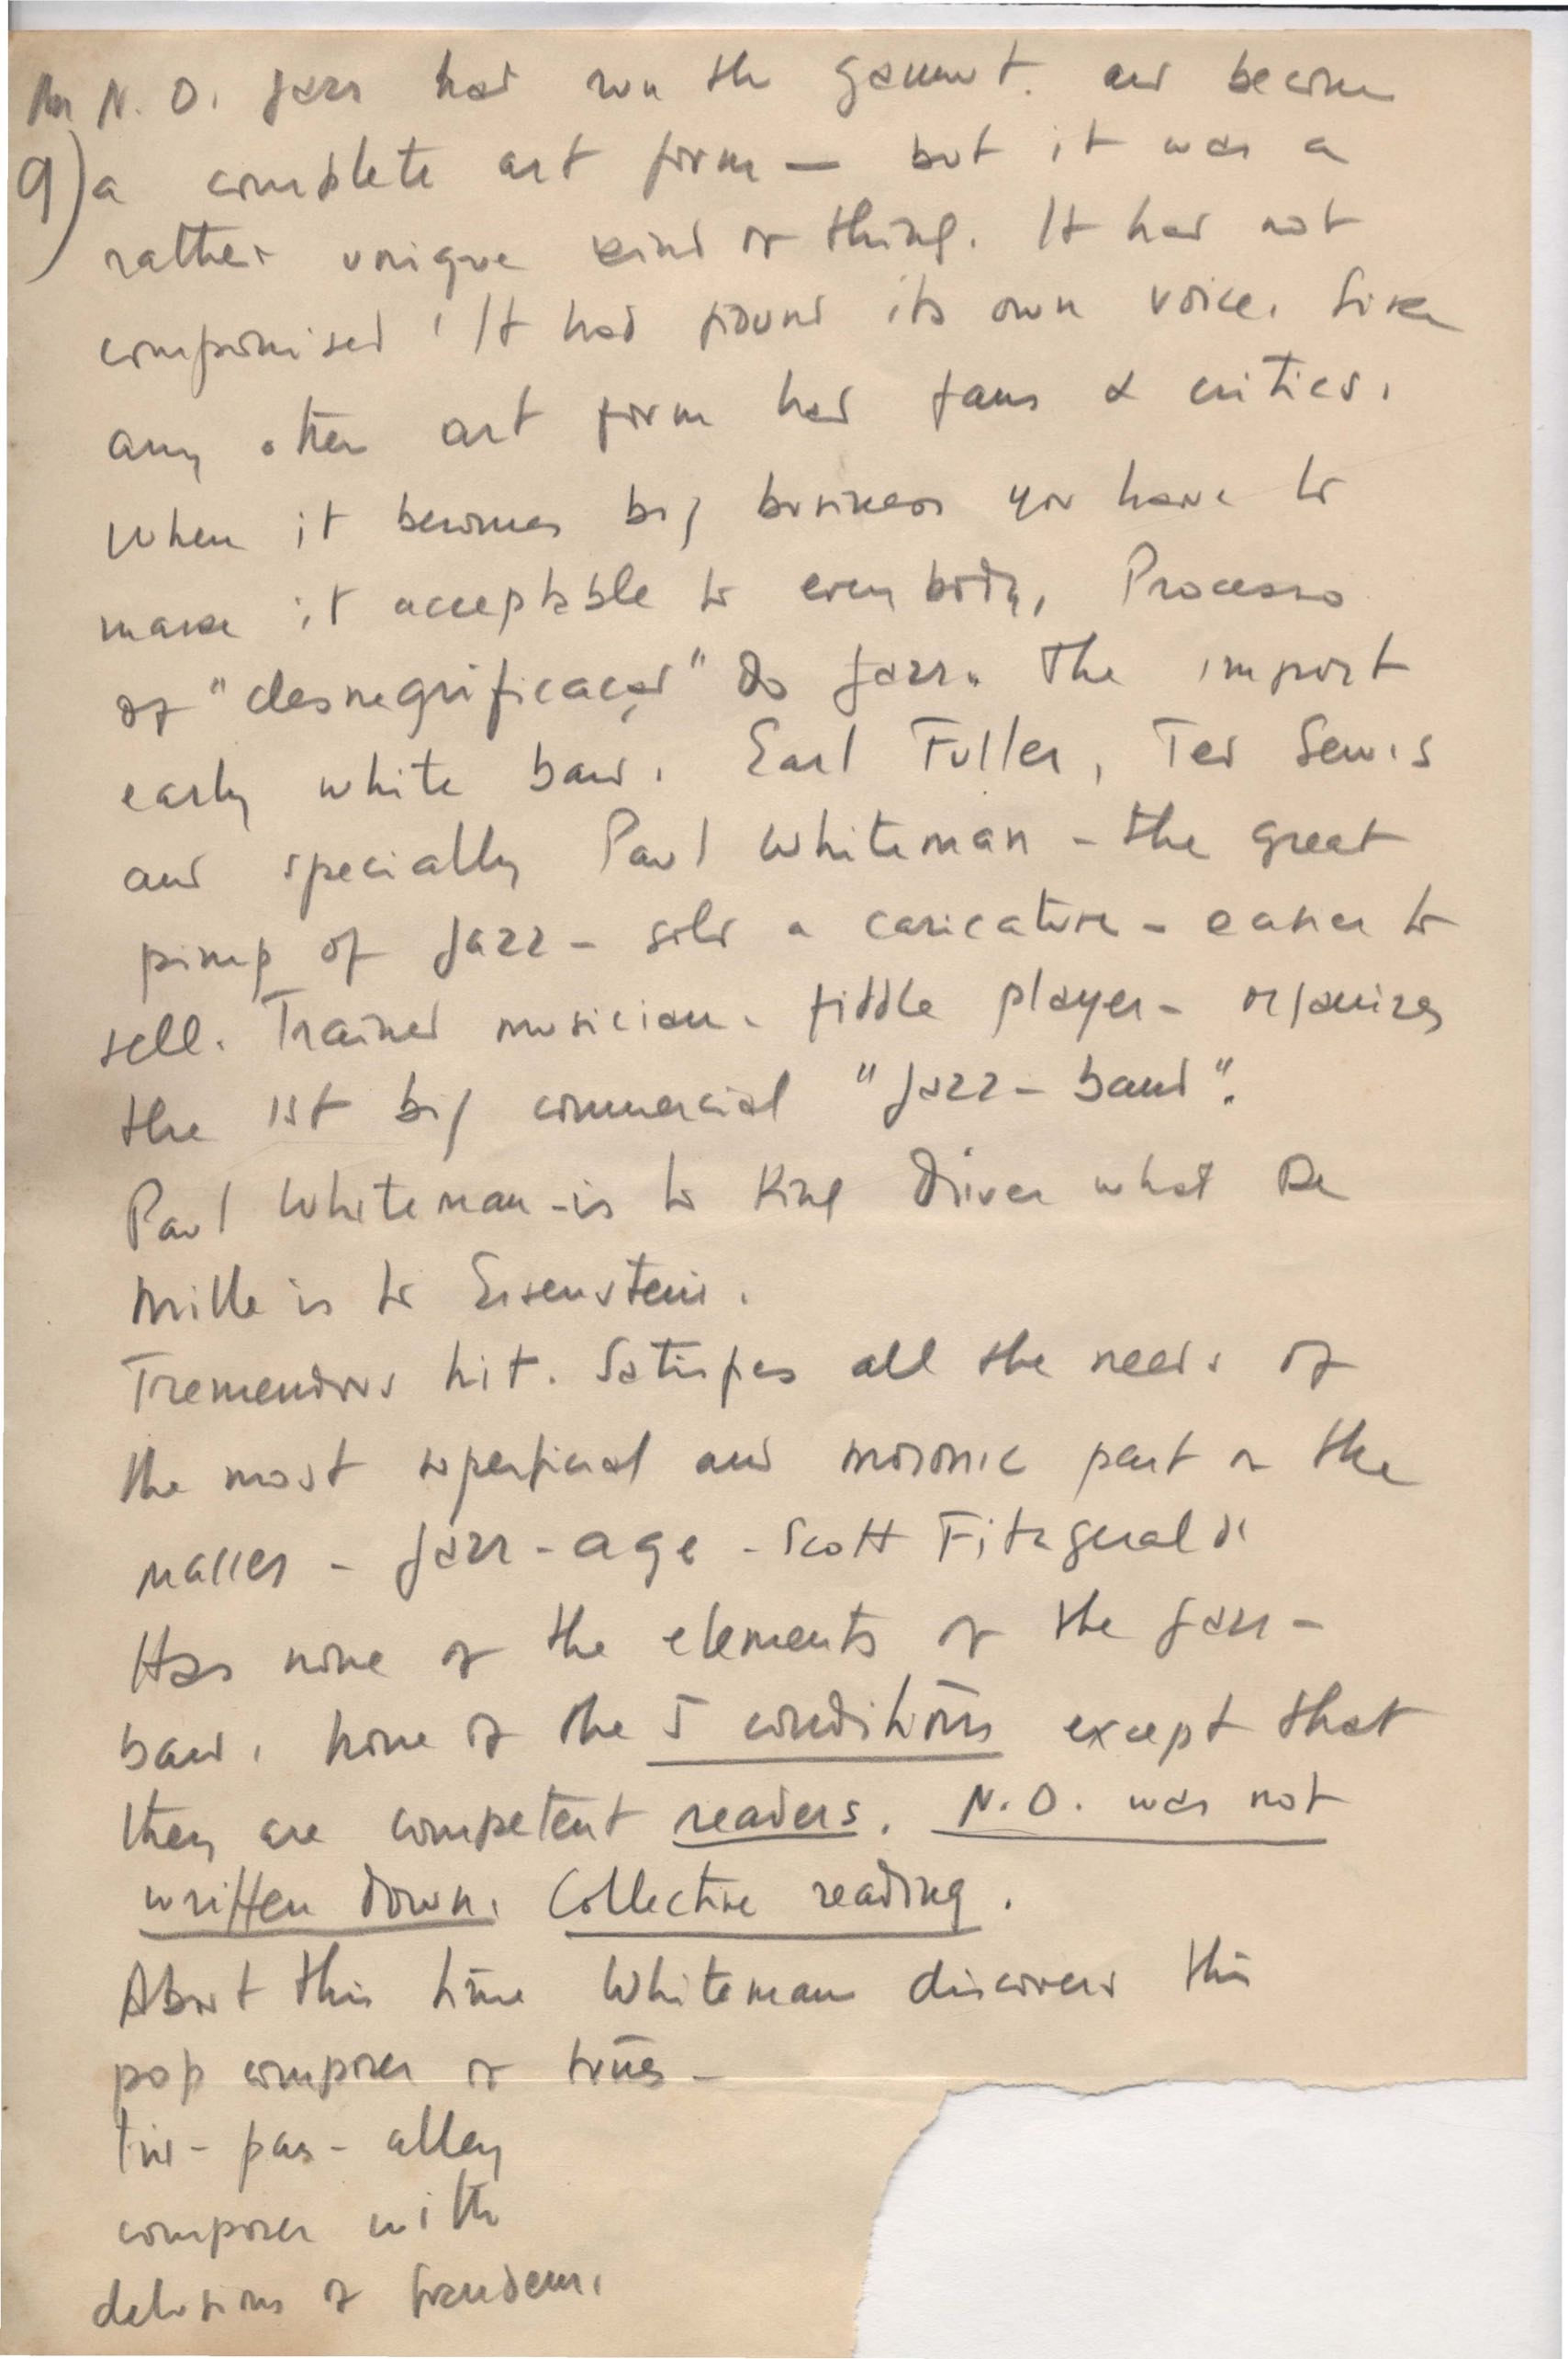 In N. O. jazz had run the gamut. and become
9) a complete art form — but it was a
rather unique kind of thing. It had not
compromised. It had found its own voice. Like
any other art form had fans & critics.
When it becomes big business you have to
make it acceptable to everybody. Processo
of "desnegrificação" do jazz. The import
early white band. Earl Fuller, Ted Lewis
and specially Paul Whiteman - the great
pimp of jazz - sold a caricature - easier to
sell. Trained musician. fiddle player - organizes
the 1st big commercial "jazz-band".
Paul Whiteman - is to King Oliver what De
Mille is to Eisenstein.
Tremendous hit. Satisfies all the needs of
the most superficial and moronic part of the
masses - jazz-age - Scott Fitzgerald's
Has none of the elements of the jazz-
band. None of the 5 conditions except that
they are competent readers. N.O. was not
written down. Collective reading.
About this time Whiteman discovers this
pop composer of tunes -
tin-pan-alley
composer with
delusions of grandeur.